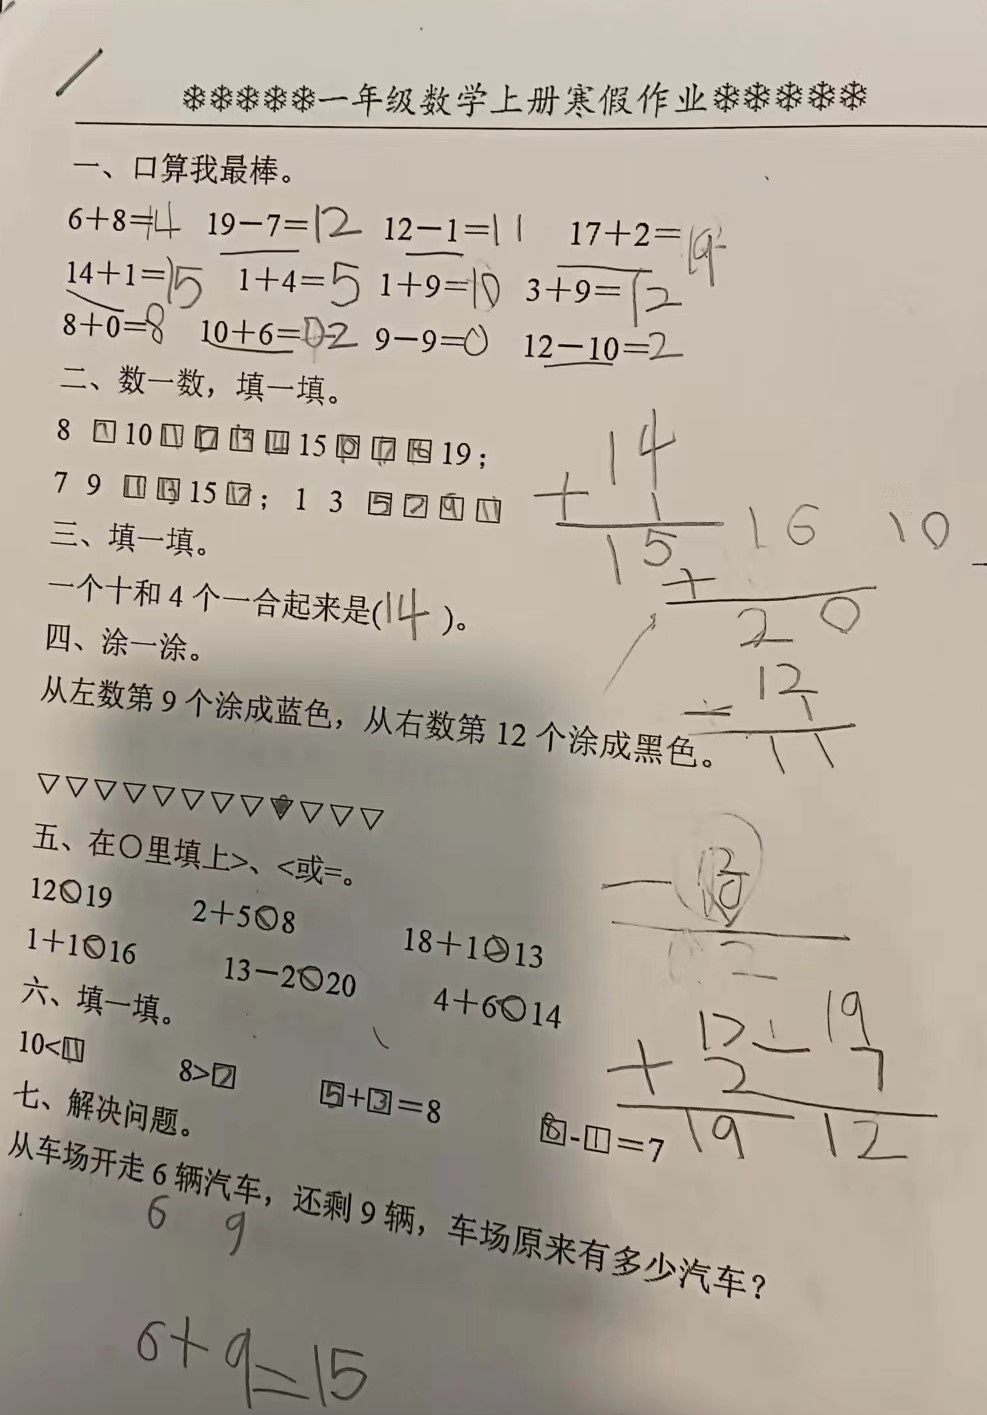 ❄❄❄❄❄一年级数学上册寒假作业❄❄❄❄❄
一、口算我最棒。
6+8=14 19-7=12 12-1=11 17+2=19
14+1=15 1+4=5 1+9=10 3+9=12
8+0=8 10+6= 9-9=0 12-10=2
二、数一数，填一填。
8 9 10 11 12 13 14 15 16 17 18 19；
7 9 11 13 15 17；1 3 5 7 9 11
三、填一填。
一个十和4个一合起来是(14)。
四、涂一涂。
从左数第9个涂成蓝色，从右数第12个涂成黑色。
▽▽▽▽▽▽▽▽▼▽▽▽
五、在○里填上>、<或=。
12<19 2+5<8 18+1>13
1+1<16 13-2<20 4+6<14
六、填一填。
10<11 8>7 5+3=8 8-1=7
七、解决问题。
从车场开走6辆汽车，还剩9辆，车场原来有多少汽车？
6 9
6+9=15
14
+ 1
15
16 10
+
20
12
- 1
11
12
- 10
2
17 - 19
+ 2 7
19 12